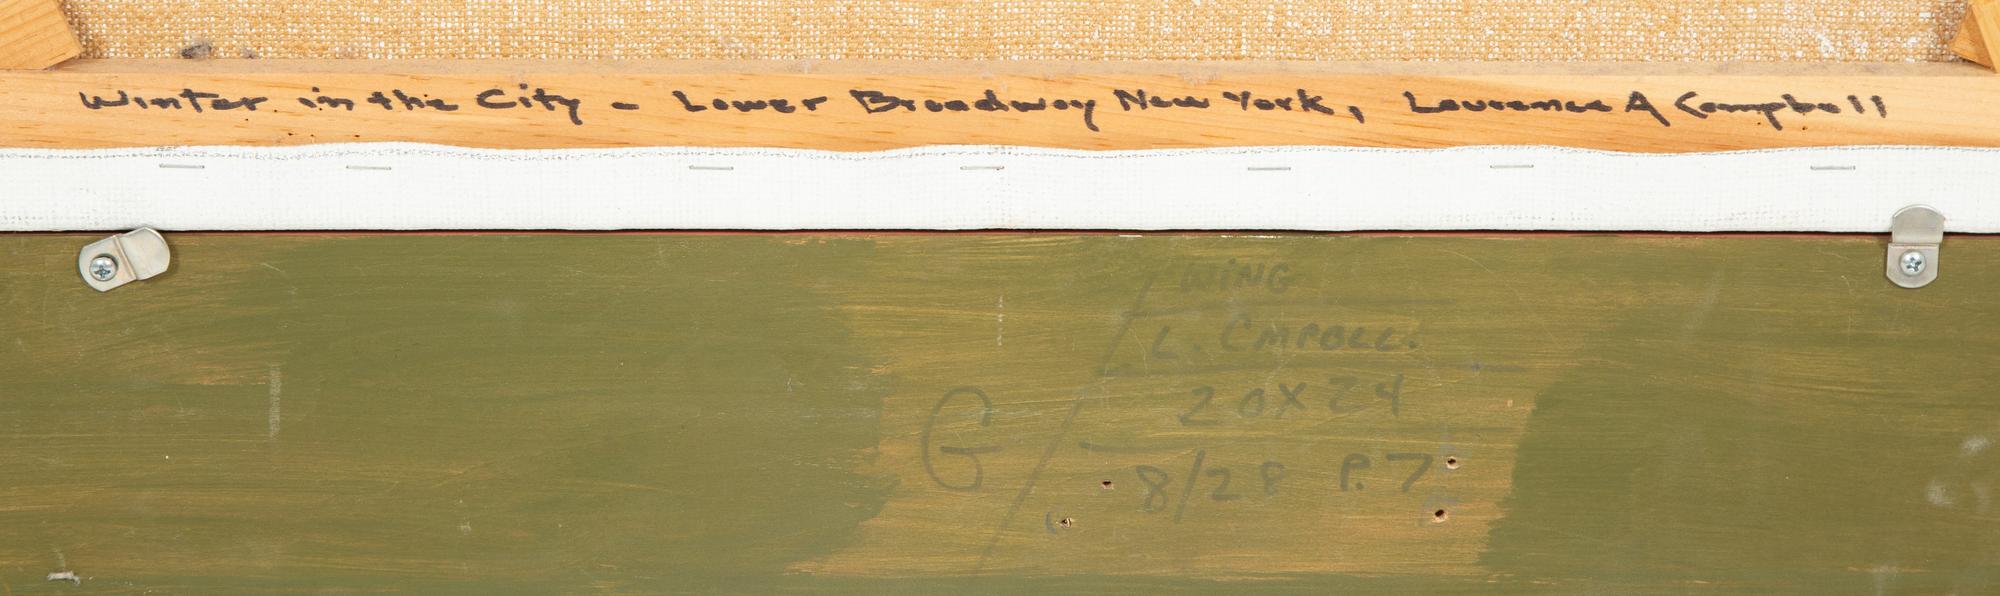 Winter in the City - Lower Broadway New York, Lawrence A Campbell
WING
L. CMPBLL.
20X24
G
8/28 P.7